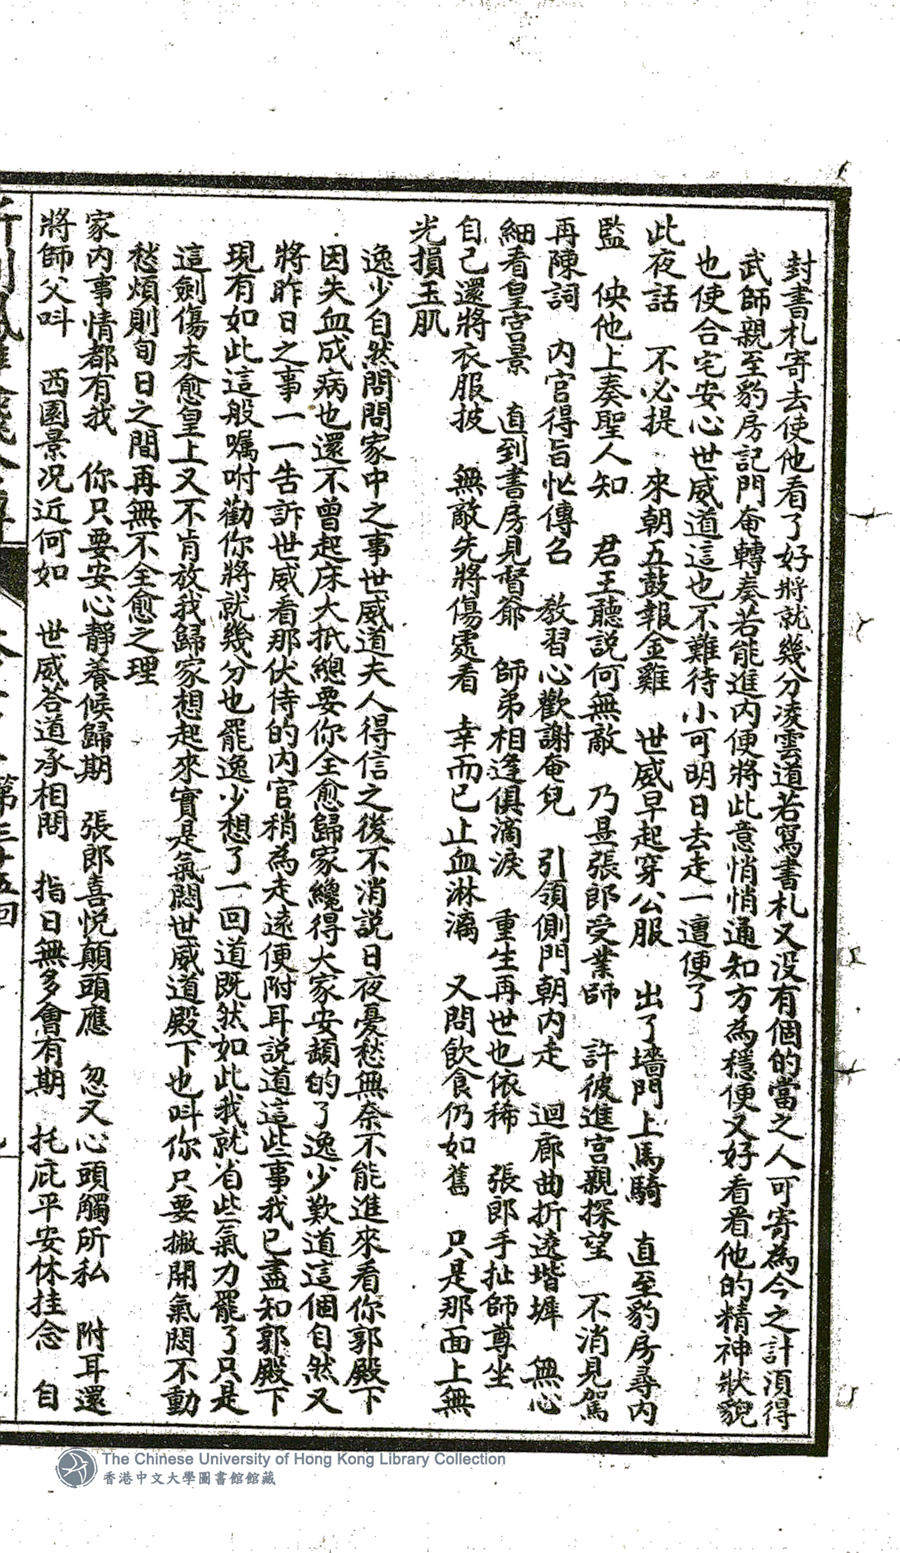 封書札寄去使他看了好將就幾分凌雲道若寫書札又没有個的當之人可寄為今之計湏得
武師親至豹房記門奄轉奏若能進內便將此意悄悄通知方為穩便又好看看他的精神狀貌
也使合宅安心世威道這也不難待小可明日去走一遭便了
此夜話　不必提　來朝五鼓報金雞　世威早起穿公服　出了墻門上馬騎　直至豹房尋內
監　佒他上奏聖人知　君王聽説何無敵　乃是張郎受業師　許彼進宮親探望　不消見駕
再陳詞　內官得旨忙傳名　教習心歡謝奄兒　引領側門朝內走　迴廊曲折遶堦墀　無心
細看皇宮景　直到書房見督爺　師弟相逢俱滴淚　重生再世也依稀　張郎手扯師尊坐
自己還將衣服披　無敵先將傷處看　幸而已止血淋漓　又問飲食仍如舊　只是那面上無
光損玉肌
逸少自然問問家中之事世威道夫人得信之後不消説日夜憂愁無奈不能進來看你郭殿下
因失血成病也還不曾起床大抵總要你全愈歸家纔得大家安頴的了逸少歎道這個自然又
將昨日之事一一告訴世威看那伏侍的內官稍為走遠便附耳説道這些事我已盡知郭殿下
現有如此這般囑咐勸你將就幾分也罷逸少想了一回道既然如此我就省些氣力罷了只是
這劍傷未愈皇上又不肯放我歸家想起來實是氣悶世威道殿下也呌你只要撇開氣悶不動
愁煩則旬日之間再無不全愈之理
家內事情都有我　你只要安心靜養候歸期　張郎喜悅顛頭應　忽又心頭觸所私　附耳還
將師父呌　西園景况近何如　世威荅道承相問　指日無多會有期　托庇平安休挂念　自
第三十五回
The Chinese University of Hong Kong Library Collection
香港中文大學圖書館館藏